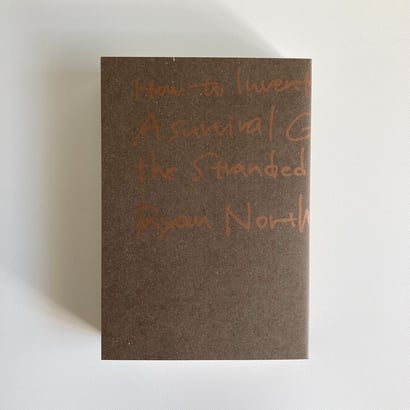 How to Invent
A Survival G
the Stranded
Ryan North